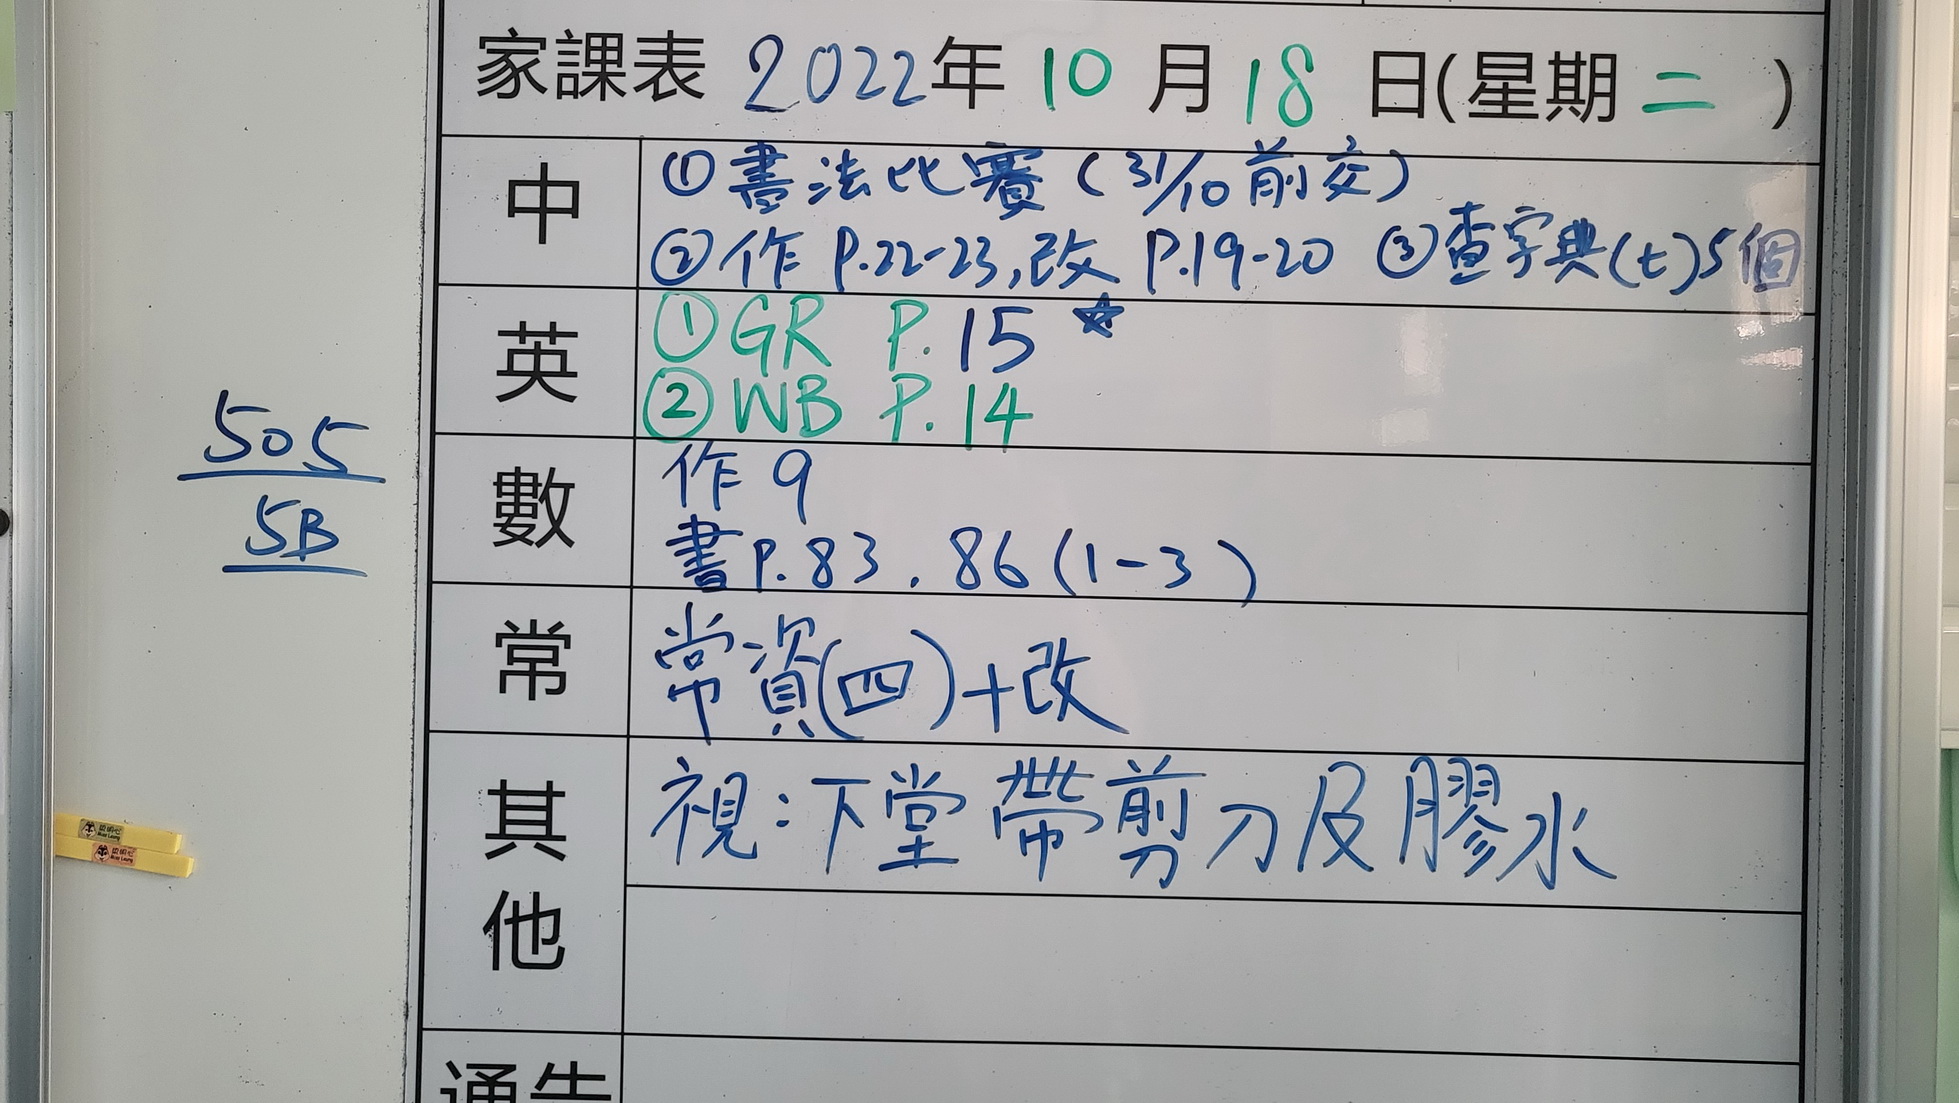 家課表 2022年 10 月 18 日(星期 二 )
中
①書法比賽 (31/10前交)
②作 P.22-23,改 P.19-20 ③查字典(七)5個
英
①GR P.15 ☆
②WB P.14
505
5B
數
作 9
書P.83, 86 (1-3)
常
常資(四)+改
其他
視:下堂帶剪刀及膠水
通告